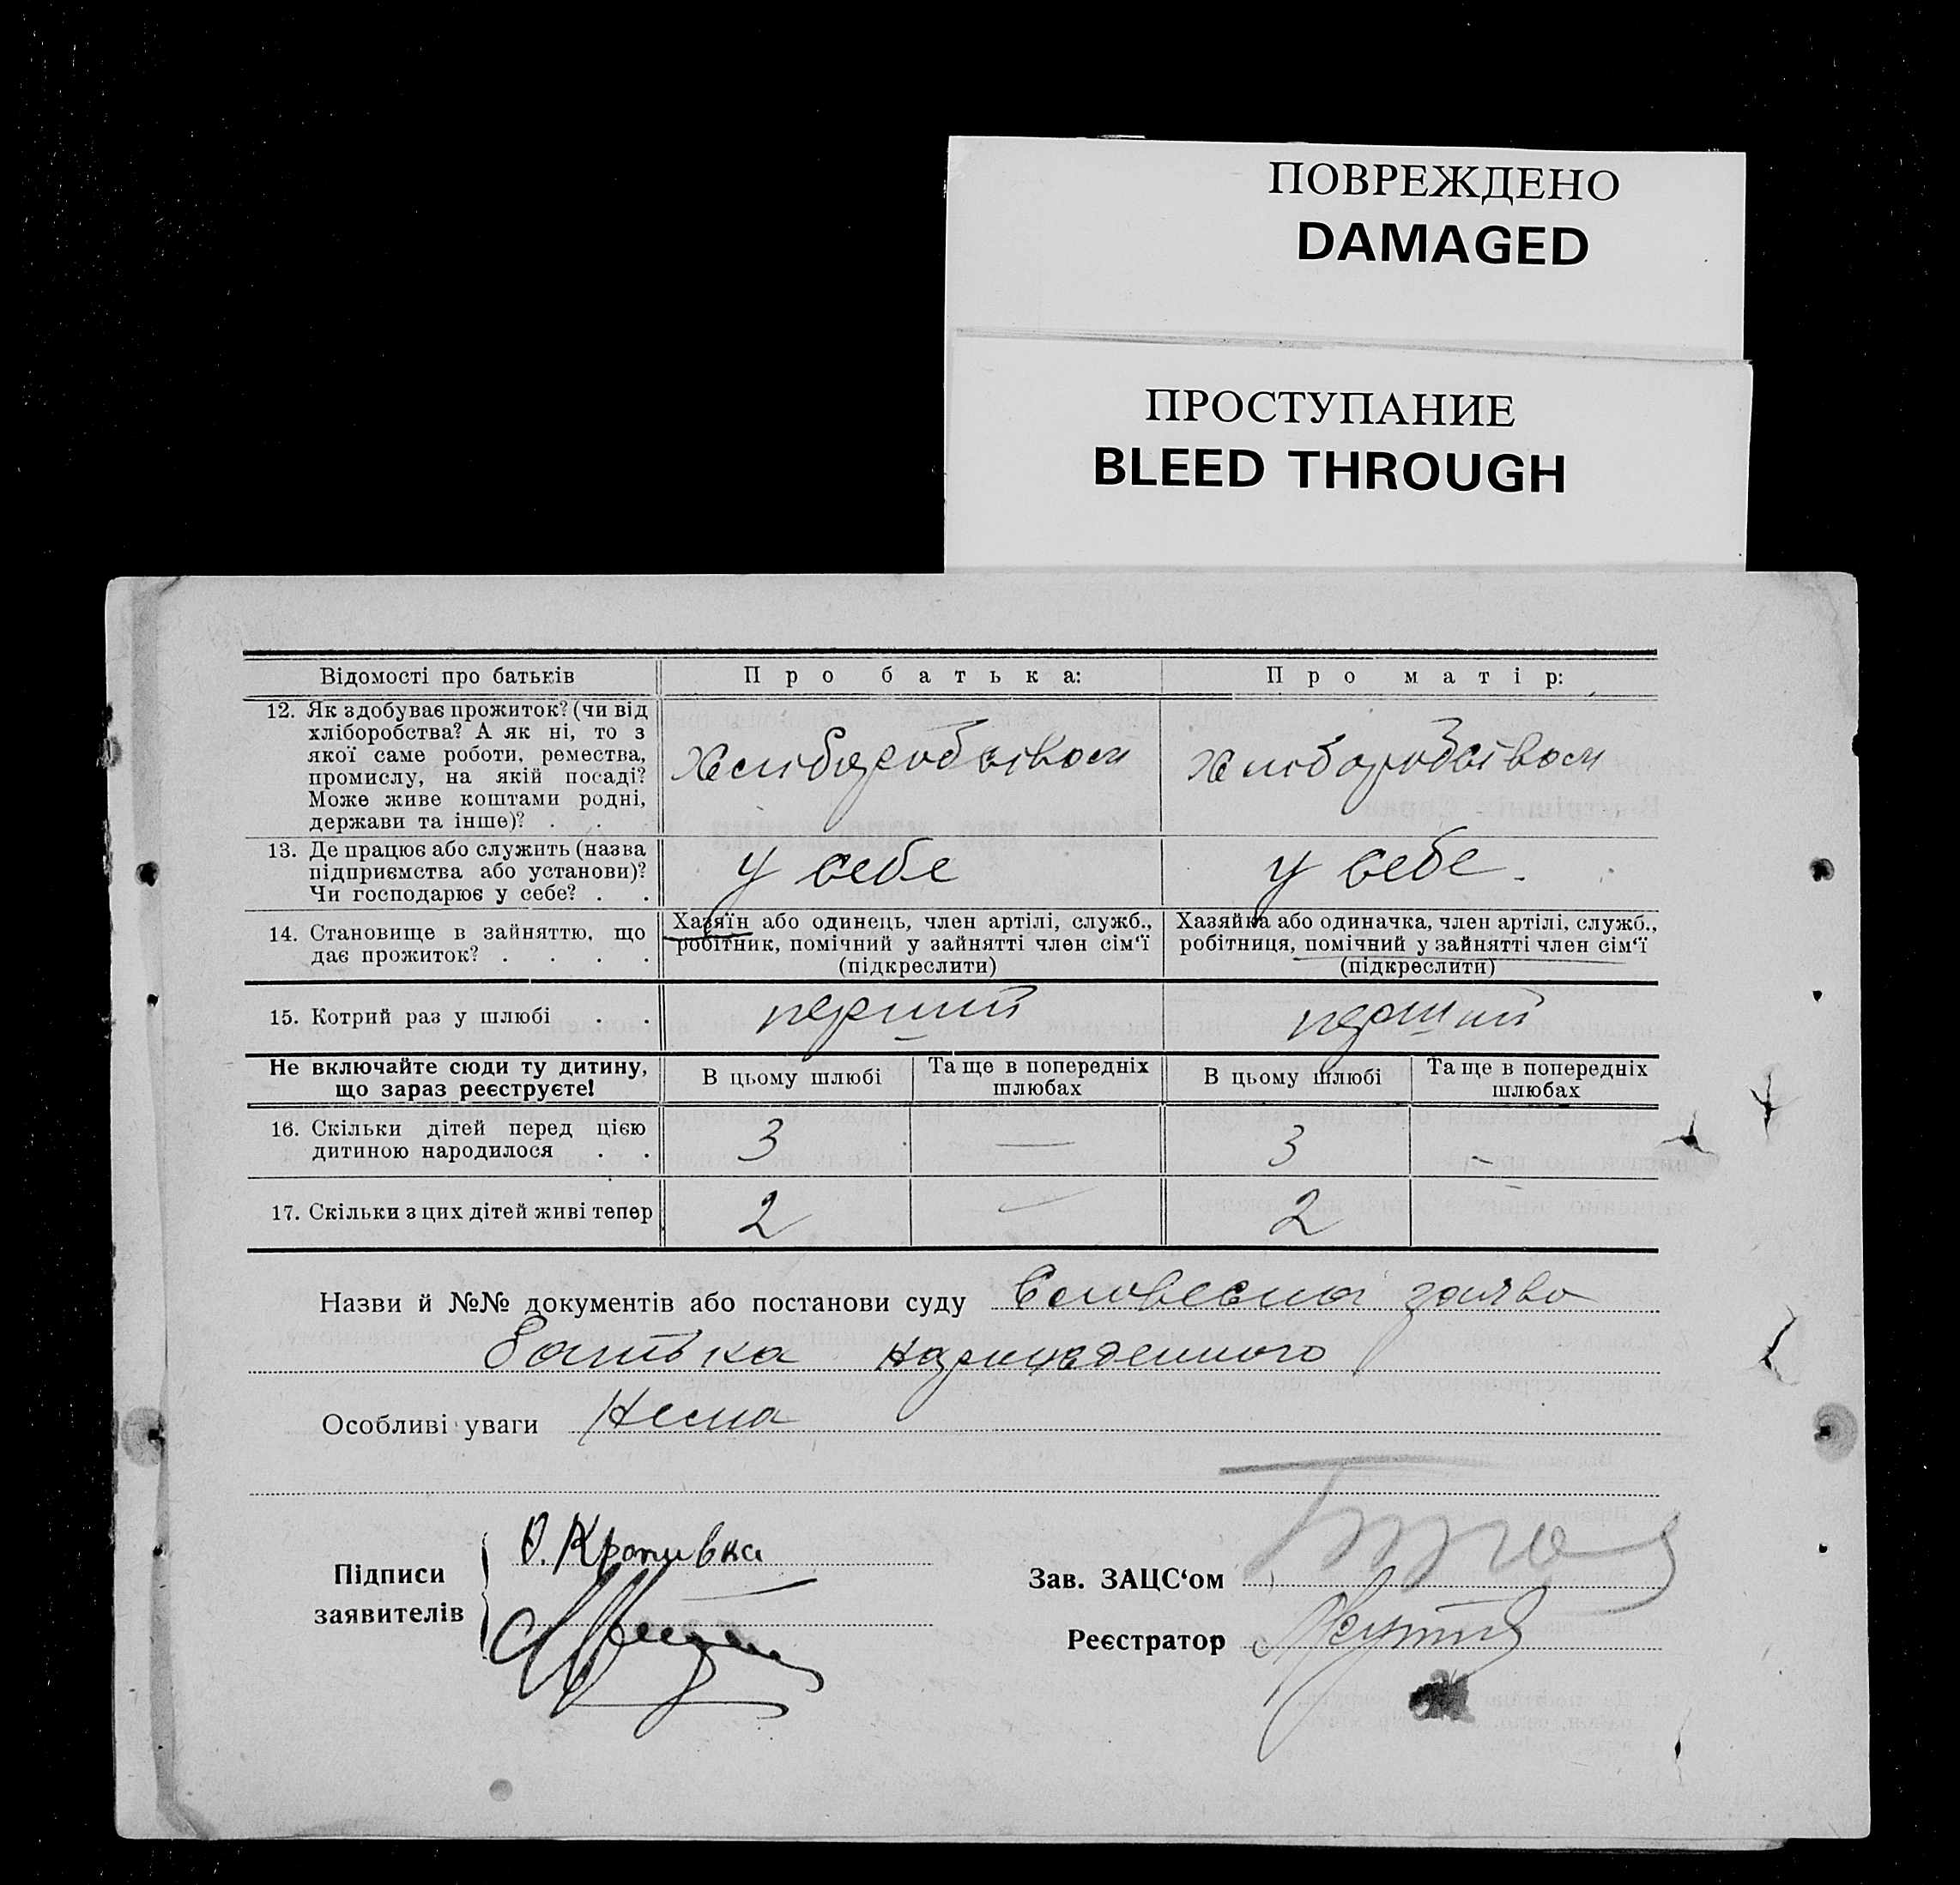 ПОВРЕЖДЕНО
DAMAGED
ПРОСТУПАНИЕ
BLEED THROUGH
Відомості про батьків
Про батька:
Про матір:
12. Як здобуває прожиток? (чи від
хліборобства? А як ні, то з
якої саме роботи, ремества,
промислу, на якій посаді?
Може живе коштами родні,
держави та інше)? . .
Хліборобством
Хліборобством
13. Де працює або служить (назва
підприємства або установи)?
Чи господарює у себе? . .
у себе
у себе.
14. Становище в зайняттю, що
дає прожиток? . . . .
Хазяїн або одинець, член артілі, служб.,
робітник, помічний у зайнятті член сім‘ї
(підкреслити)
Хазяйка або одиначка, член артілі, служб.,
робітниця, помічний у зайнятті член сім‘ї
(підкреслити)
15. Котрий раз у шлюбі . .
перший
перший
Не включайте сюди ту дитину,
що зараз реєструєте!
В цьому шлюбі
Та ще в попередніх
шлюбах
В цьому шлюбі
Та ще в попередніх
шлюбах
16. Скільки дітей перед цією
дитиною народилося . .
3
—
3
-
17. Скільки з цих дітей живі тепер
2
—
2
Назви й №№ документів або постанови суду Словесна заява
батька народженного
Особливі уваги Нема
Підписи
заявителів
О. Кропивка
Зав. ЗАЦС‘ом
Реєстратор